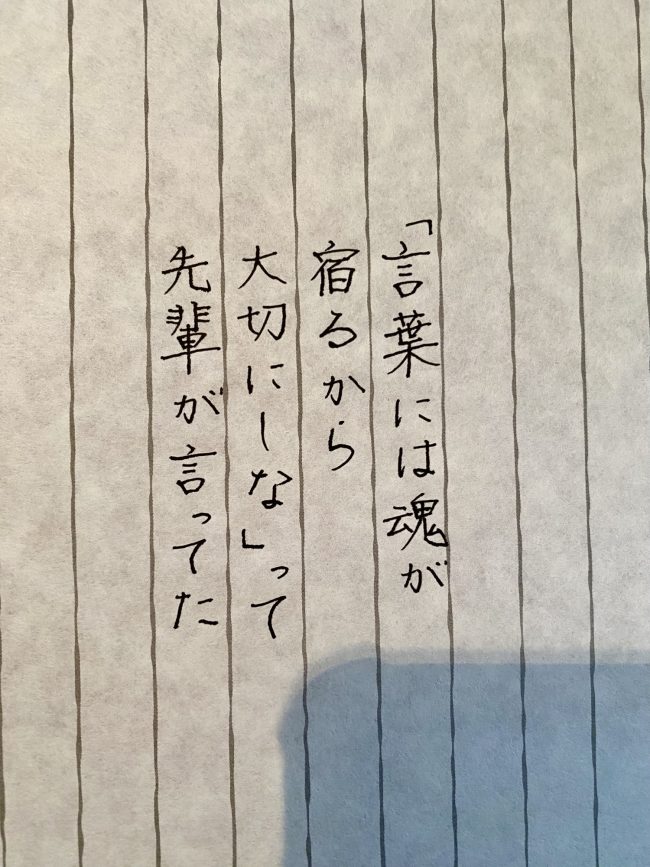 「言葉には魂が
宿るから
大切にしな」って
先輩が言ってた